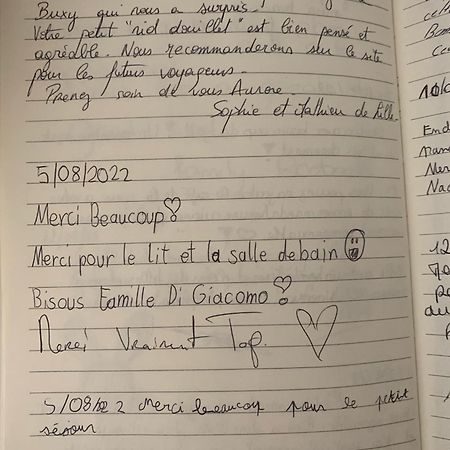 Buxy qui nous a surpris !
Votre petit "nid douillet" est bien pensé et
agréable. Nous recommanderons sur le site
pour les futurs voyageurs.
Prenez soin de vous Aurore.
Sophie et Mathieu de Lille.
5/08/2022
Merci Beaucoup!
Merci pour le lit et la salle de bain
Bisous Famille Di Giacomo!
Merci Vraiment Top.
5/08/22 2 Merci beaucoup pour le petit
séjour
10/0
12